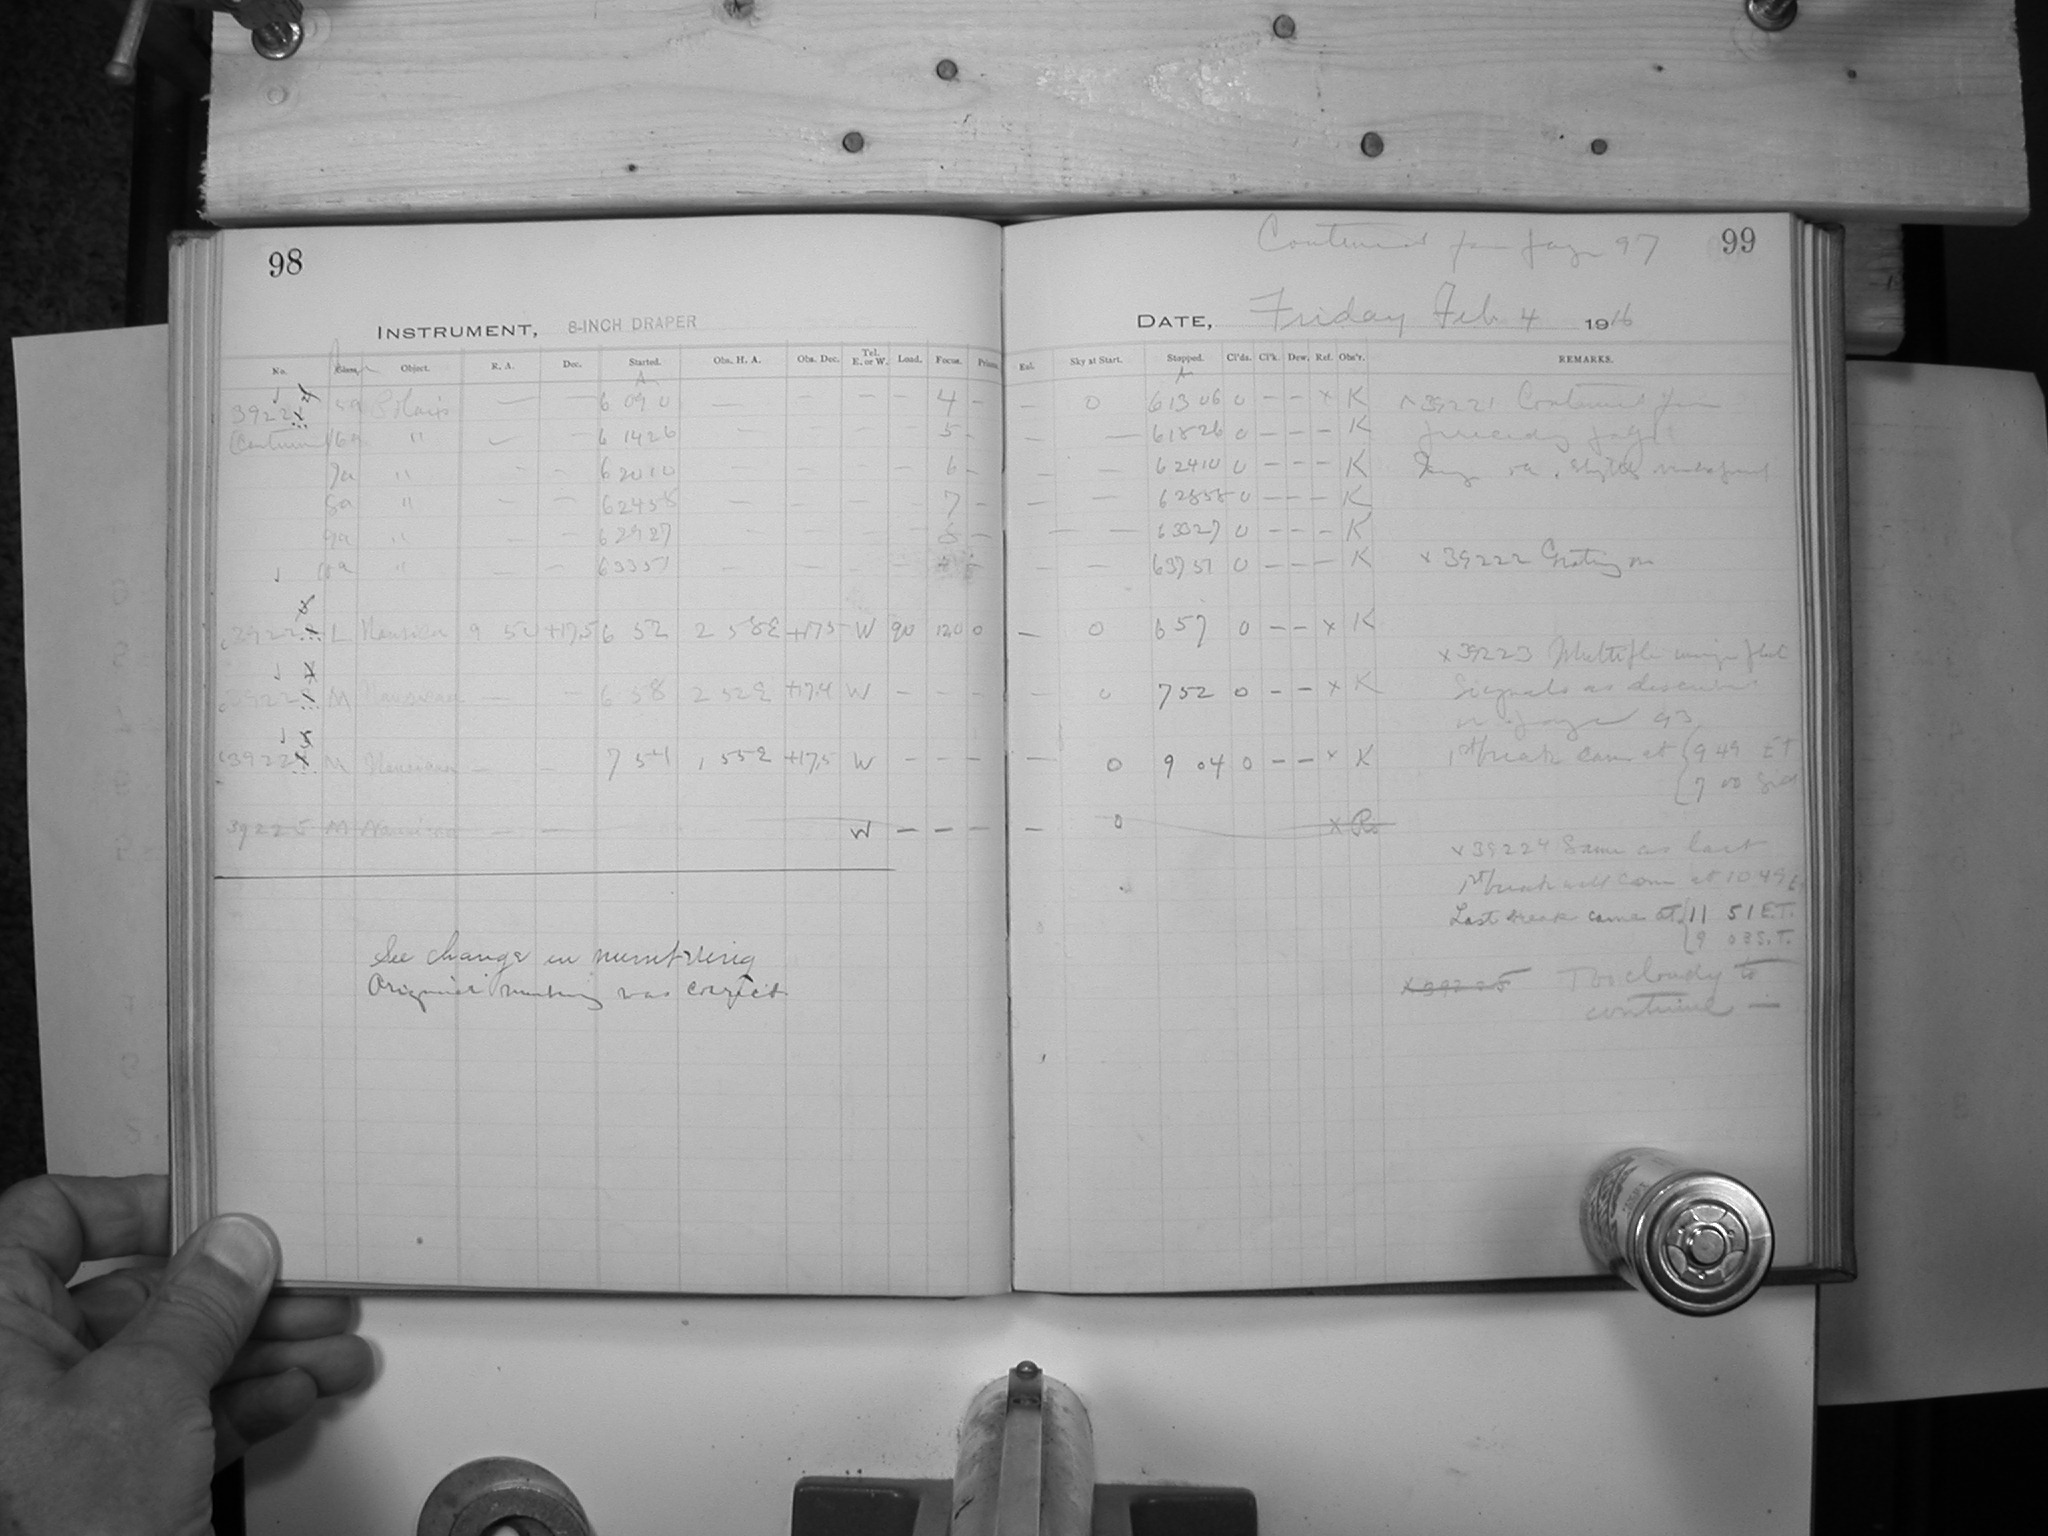 98
INSTRUMENT, 8-INCH DRAPER
No. Class. Object. R. A. Dec. Started. Obs. H. A. Obs. Dec. Tel. E. or W. Load. Focus. Prisms
39221 5a Polaris — — 6 09 0 4 —
(Continued) 6a " — 6 14 26 — — — — 5 —
7a " — — 6 20 10 — — — — 6 —
8a " — — 6 24 58 — — — — 7 —
9a " — — 6 29 27 — — — — 8 —
10a " — — 6 33 51 — — — —
39222 L 9 50 +17.5 6 52 2 58 E +17.5 W 90 120 0
39223 M — — 6 58 2 52 E +17.4 W — — —
39224 M — — 7 54 1 55 E +17.5 W — — —
39225 M — — W — — —
See change in numbering
Original numbering was correct
Continued from page 97
99
DATE, Friday Feb 4 1916
Exl. Sky at Start. Stopped. Cl'ds. Cl'k. Dew. Ref. Obs'r. REMARKS.
— 0 6 13 06 0 — — x K x 39221 Continued from
— — 6 18 26 0 — — — K preceding page
— — 6 24 10 0 — — — K
— — 6 28 58 0 — — — K
— — 6 33 27 0 — — K
— — 6 37 51 0 — — — K x 39222 Grating on
— 0 6 57 0 — — x K
x 39223 Multiple image plate
— 0 7 52 0 — — x K Signals as described
on page 93
— 0 9 04 0 — — x K 1st break came at 9 49 ET
7 00
— 0 x R
x 39224 Same as last
1st break will come at 10 49 E
Last break came at 11 51 E.T.
9 03 S.T.
x 39225 Too cloudy to
continue —